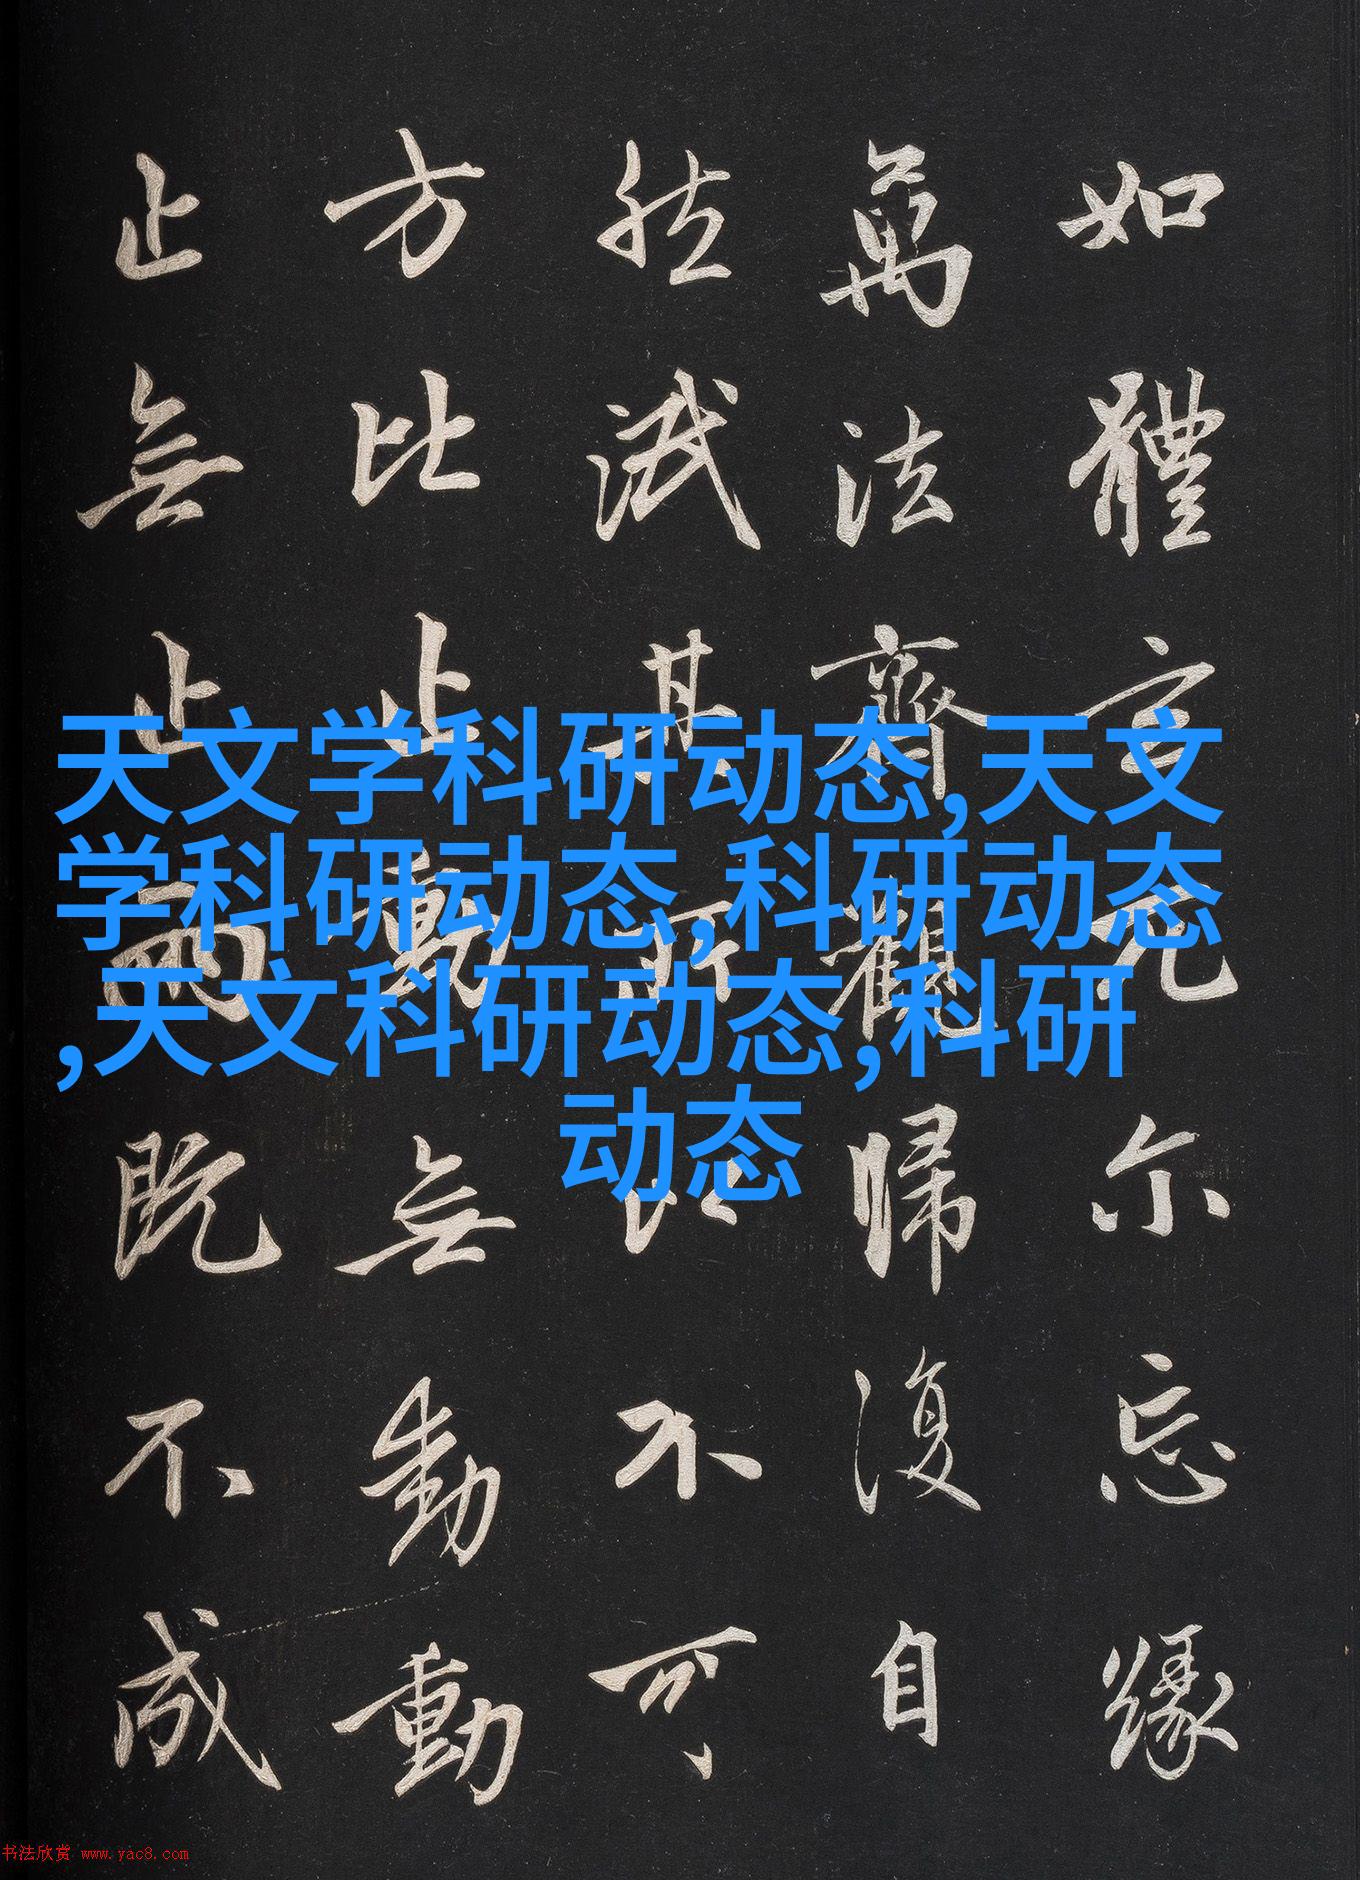 如體玄兀尔忘緣
萬法齊觀歸復自
然泯其所以不可
方比止動無動動
止無止兩既不成
天文学科研动态,天文
学科研动态,科研动态
,天文科研动态,科研
动态
书法欣赏 www.yac8.com